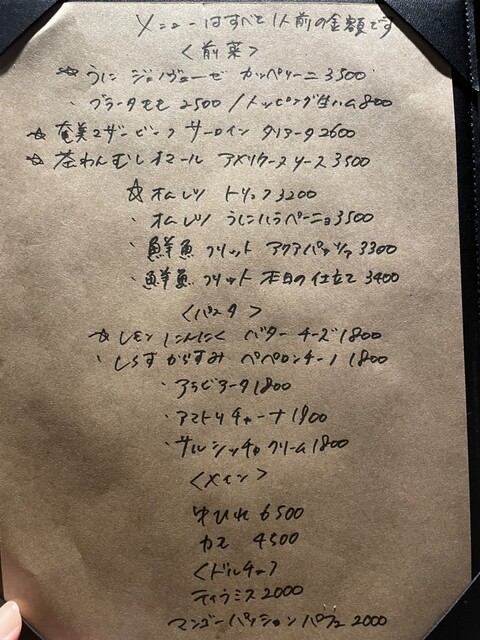 メニューはすべて1人前の金額です
<前菜>
☆うに ジェノヴェーゼ カッペリーニ 3500
・ブラータモモ 2500 / トッピング生ハム800
☆奄美マザービーフ サーロイン タリアータ2600
☆茶わんむしオマール アメリケーヌソース3500
☆オムレツ トリュフ3200
・オムレツ うにハラペーニョ3500
・鮮魚 フリット アクアパッツァ 3300
・鮮魚 フリット 本日の仕立て 3400
<パスタ>
☆レモン にんにく バター チーズ1800
・しらす からすみ ペペロンチーノ 1800
・アラビアータ1800
・アマトリチャーナ1900
・サルシッチャ クリーム1800
<メイン>
牛ひれ 6500
カモ 4500
<ドルチェ>
ティラミス2000
マンゴーパッションパフェ 2000